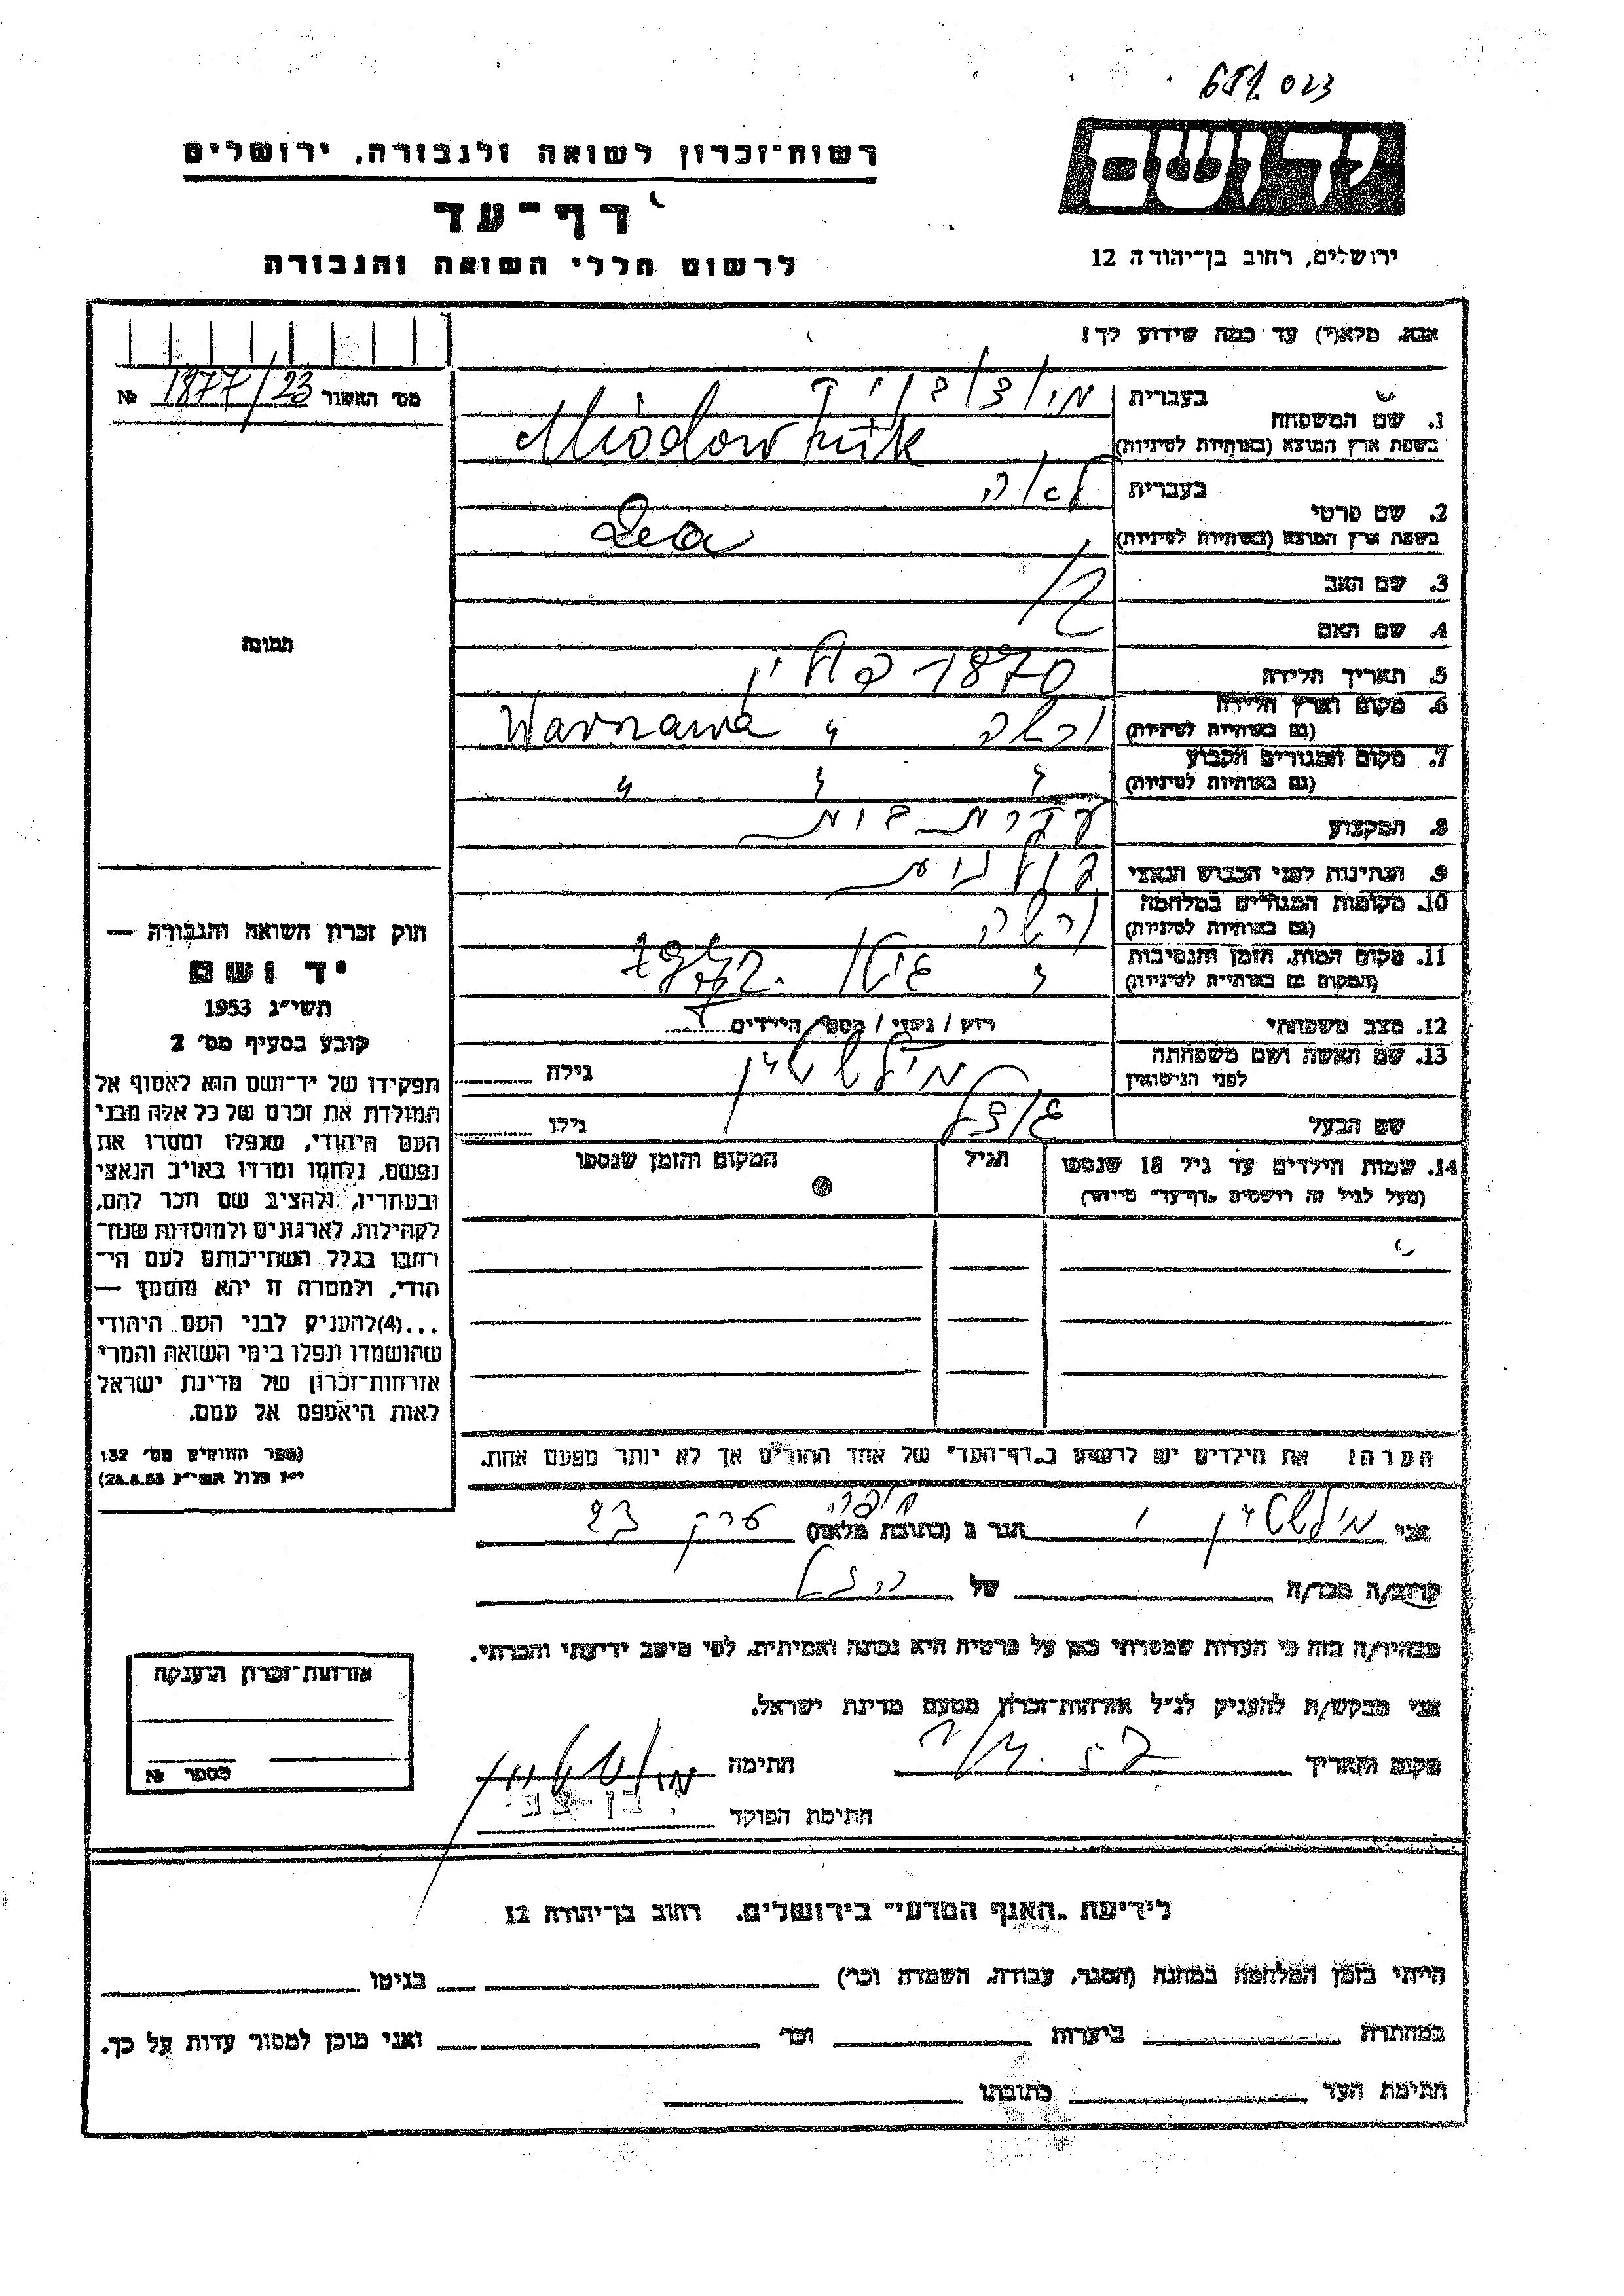 023
רשות־זכרון לשואה ולגבורה, ירושלים
יד ושם
דף־עד
לרשום חללי השואה והגבורה
ירושלים, רחוב בן־יהודה 12
אנא, מלא(י) עד כמה שידוע לך!
מס׳ האשור 1877/23 №
בעברית
1. שם המשפחה
בשפת ארץ המוצא (באותיות לטיניות) Miodownik
בעברית לאה
2. שם פרטי
בשפת ארץ המוצא (באותיות לטיניות) Lea
3. שם האב
4. שם האם
תמונה
5. תאריך הלידה 1870
6. מקום וארץ הלידה ורשה " Warszawa
(גם באותיות לטיניות)
7. מקום המגורים הקבוע
(גם באותיות לטיניות) " " "
8. המקצוע עקרת בית
9. הנתינות לפני הכבוש הנאצי
10. מקומות המגורים במלחמה ורשה
(גם באותיות לטיניות)
11. מקום המות, הזמן והנסיבות " גיטו
(המקום גם באותיות לטיניות)
12. מצב משפחתי רוק / נשוי / מספר הילדים
13. שם האשה ושם משפחתה מילשטיין גילה
לפני הנישואין
שם הבעל גילו
14. שמות הילדים עד גיל 18 שנספו הגיל המקום והזמן שנספו
(מעל לגיל זה רושמים „דף־עד״ מיוחד)
חוק זכרון השואה והגבורה —
יד ושם
תשי״ג 1953
קובע בסעיף מס׳ 2
תפקידו של יד־ושם הוא לאסוף אל
המולדת את זכרם של כל אלה מבני
העם היהודי, שנפלו ומסרו את
נפשם, נלחמו ומרדו באויב הנאצי
ובעוזריו, ולהציב שם וזכר להם,
לקהילות, לארגונים ולמוסדות שנח־
רבו בגלל השתייכותם לעם הי־
הודי, ולמטרה זו יהא מוסמך —
...(4)להעניק לבני העם היהודי
שהושמדו ונפלו בימי השואה והמרי
אזרחות־זכרון של מדינת ישראל
לאות היאספם אל עמם.
(ספר החוקים מס׳ 132
י״ז אלול תשי״ג 28.8.53)
הערה! את הילדים יש לרשום ב„דף־העד״ של אחד ההורים אך לא יותר מפעם אחת.
אני מילשטיין י הגר ב (כתובת מלאה) חיפה 23
קרוב/ה מכר/ה של
מצהיר/ה בזה כי העדות שמסרתי כאן על פרטיה היא נכונה ואמיתית, לפי מיטב ידיעתי והכרתי.
אני מבקש/ת להעניק לנ״ל אזרחות־זכרון מטעם מדינת ישראל.
מקום ותאריך חתימה מילשטיין
חתימת הפוקד
אזרחות־זכרון הוענקה
מספר №
לידיעת „האגף המדעי״ בירושלים, רחוב בן־יהודה 12
הייתי בזמן המלחמה במחנה (הסגר, עבודה, השמדה וכר) בגיטו
במחתרת ביערות וכר׳ ואני מוכן למסור עדות על כך.
חתימת העד כתובתו